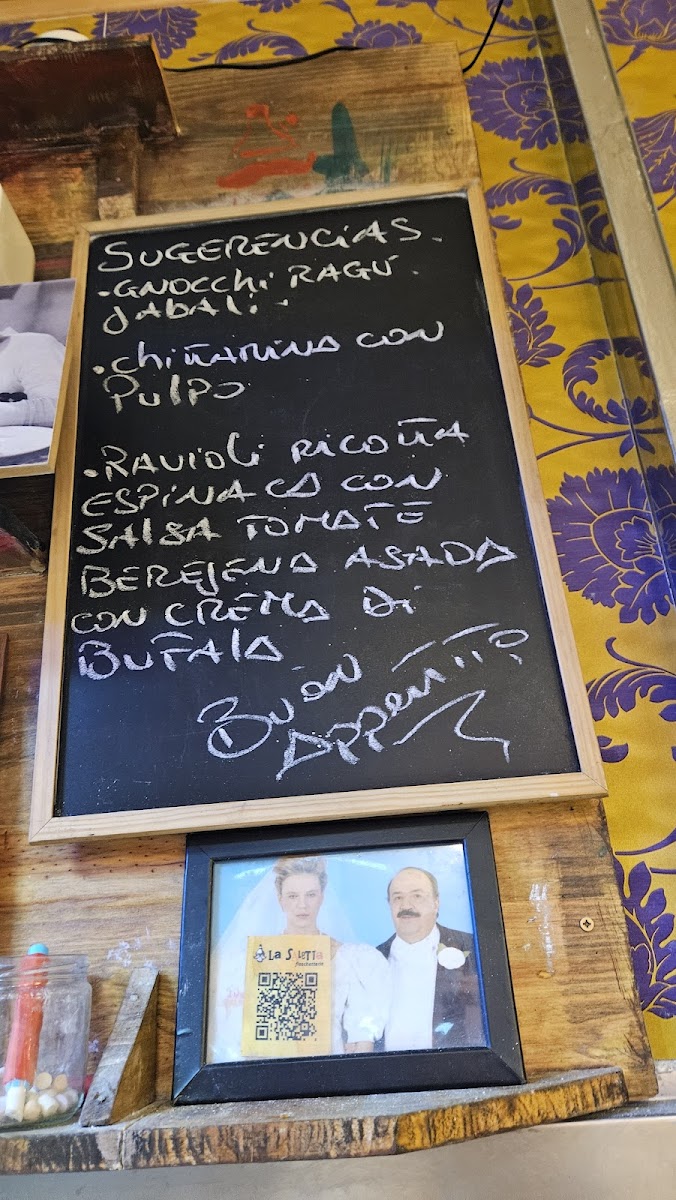 SUGERENCIAS.
• GNOCCHI RAGÚ.
JABALI.
• CHITARINA CON
PULPO
• RAVIOLI RICOTTA
ESPINACA CON
SALSA TOMATE
BEREJENA ASADA
CON CREMA DI
BUFALA
BUON APPETITO
LA SALETTA